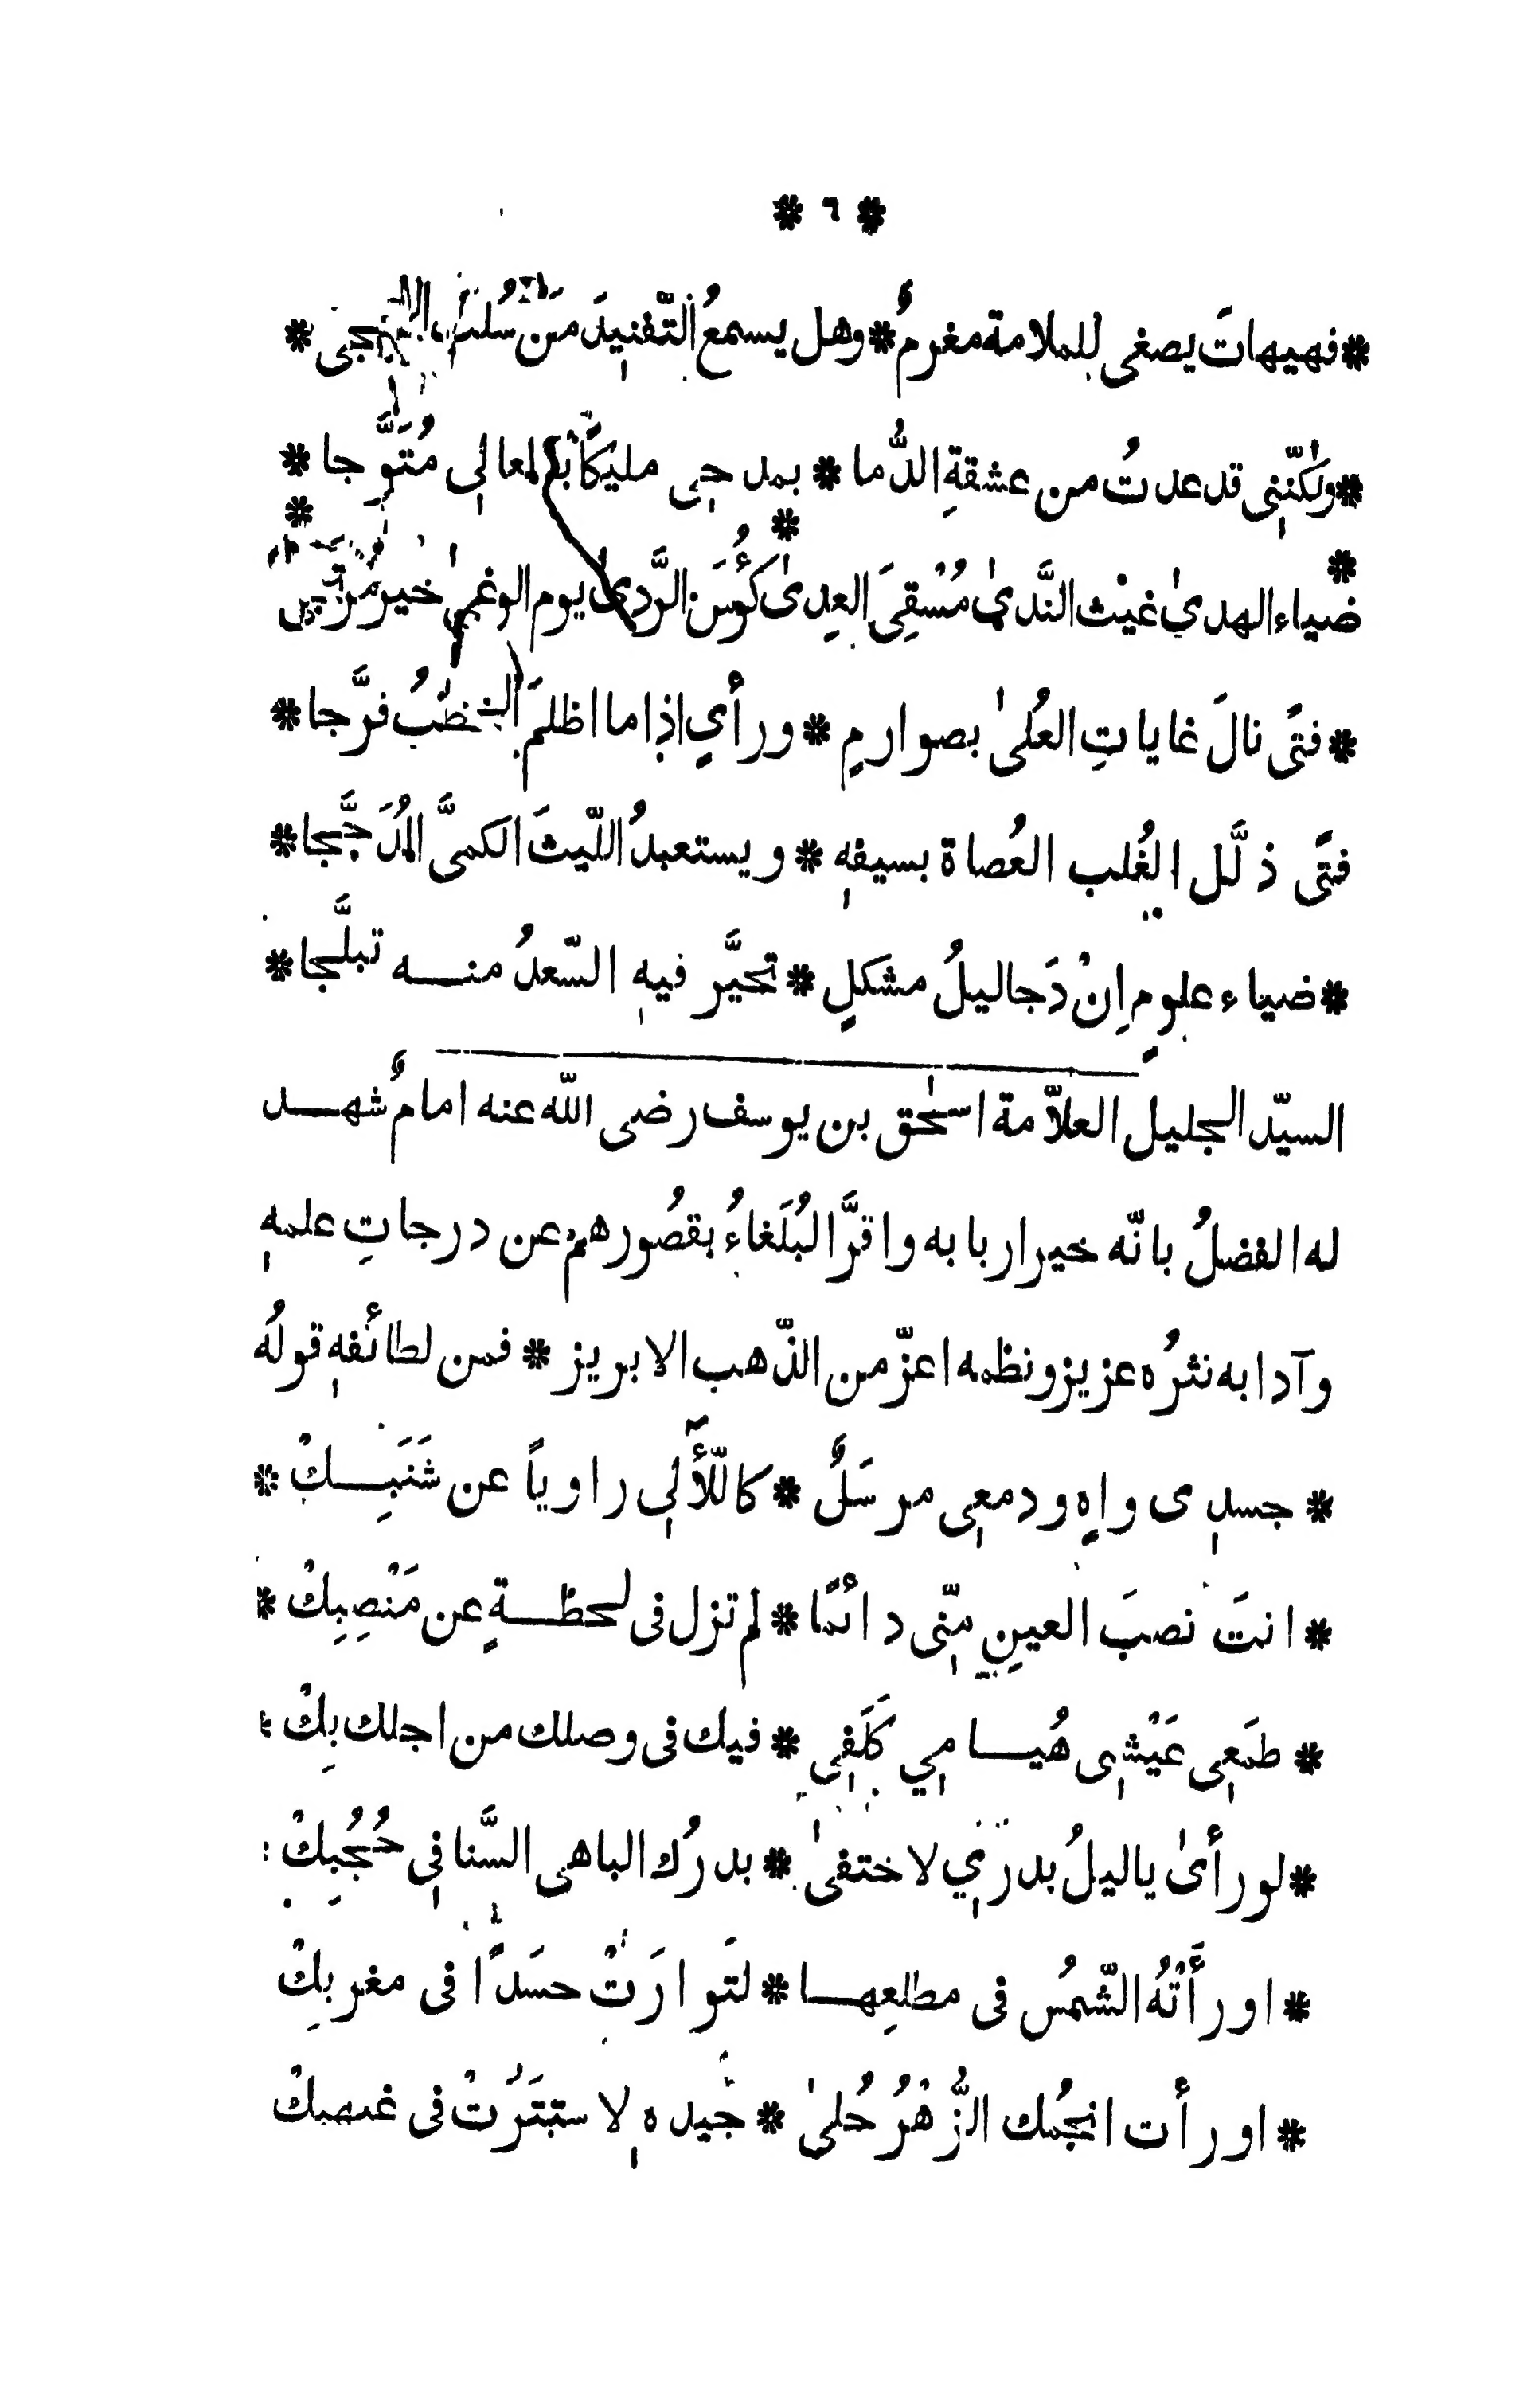 * ٦ *
* فهيهاتَ يصغى للملامة مغرمٌ * وهل يسمعُ التّفنيدَ مَنْ سُلبَ الحجى *
* ولٰكنّنِى قد عدتُ من عشقةِ الدُّما * بمدحِى مليكًا بالمعالِى مُتَوَّجا *
* ضياء الهدىٰ غيْث النَّدىٰ مُسْقِىَ العِدىٰ * كؤُسَ الرَّدىٰ يوم الوغىٰ خير *
* فتًى نالَ غاياتِ العُلىٰ بصوارمٍ * ورأيٍ اذا ما اظلمَ الخطبُ فرَّجا *
فتًى ذلَّل الغُلب العُصاة بسيفهِ * ويستعبدُ اللّيثَ الكمىَّ المُدَجَّجا *
* ضياء علومٍ اِنْ دَجا ليلُ مشكلٍ * تحيَّر فيهِ السّعدُ منه تبلَّجا *
السيّد الجليل العلاّمة اسحٰق بن يوسف رضى اللّه عنه امامٌ شهد
له الفضلُ بانّه خير اربابه واقرَّ البُلَغاءُ بقصُورهمْ عن درجاتِ علمهِ
وآدابه نثرُه عزيز ونظمه اعزّ من الذّهب الابريز * فمن لطائفهِ قولُه
* جسدِى واهٍ ودمعِى مرسَلٌ * كاللّأَلِى راوياً عن شَنَبِكْ *
* انتَ نصبَ العينِ مِنّى دائمًا * لم تزل فى لحظةٍ عن مَنْصِبِكْ *
* طمَعِى عَيْشِى هُيامِي كَلَفِي * فيك فى وصلك من اجلك بِكْ *
* لو رأىٰ ياليلُ بدرِي لاختفىٰ * بدرُك الباهى السَّنا فِى حُجُبِكْ *
* او رأَتْهُ الشّمسُ فى مطلعِها * لتَوارَتْ حسَدًا فى مغربِكْ
* او رأت انجمُك الزُّهْرُ حُلىٰ * جيدهِ لاستَتَرتْ فى غيهبكْ